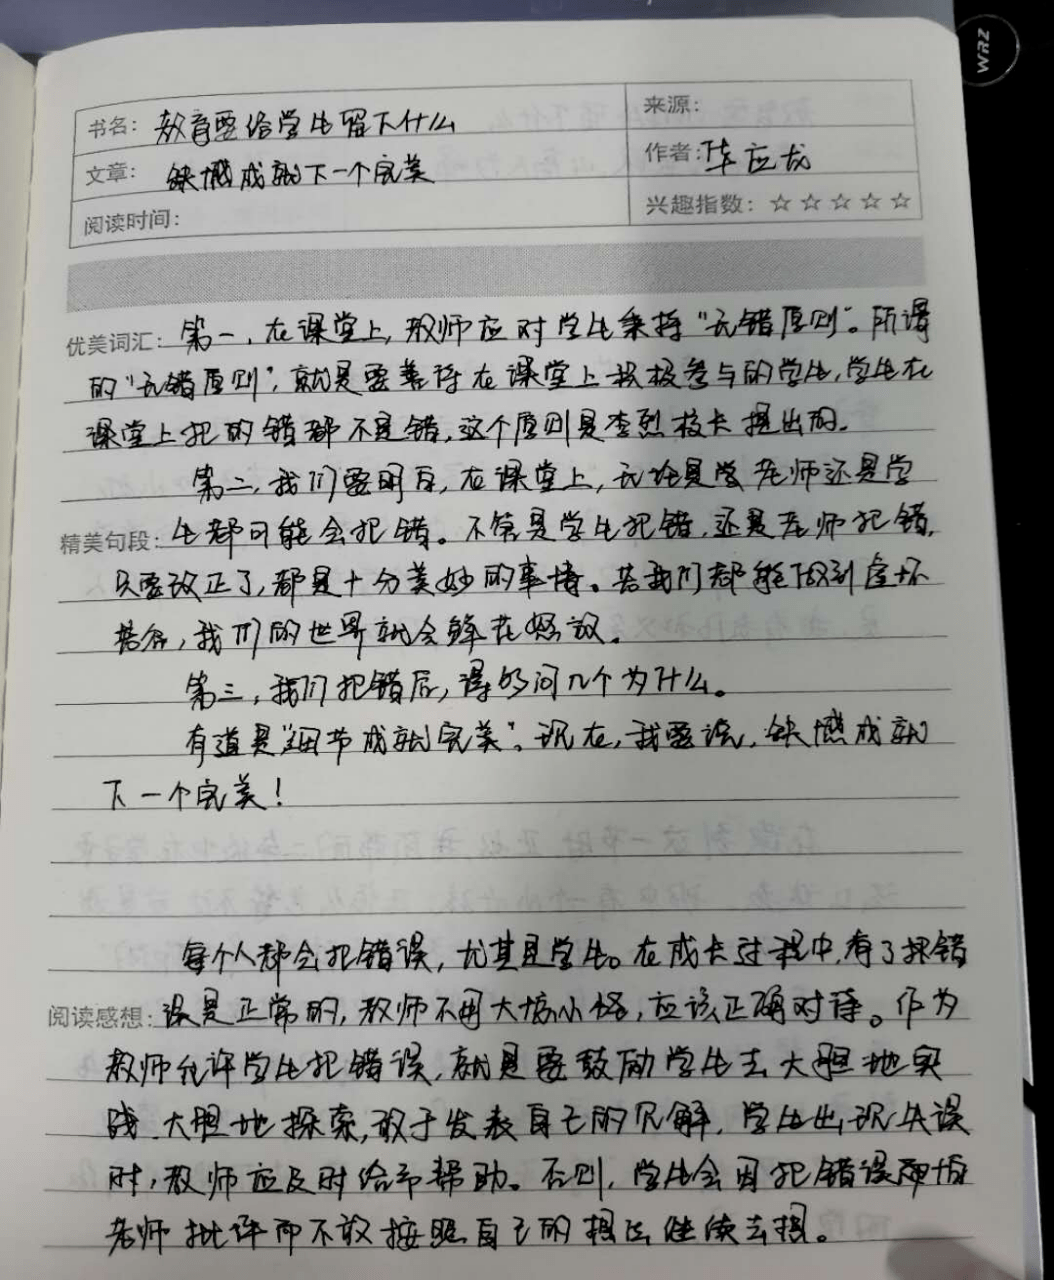 WRZ
书名：教育要给学生留下什么
来源：
文章：缺憾成就下一个完美
作者：华应龙
阅读时间：
兴趣指数：☆☆☆☆☆
优美词汇：第一，在课堂上，教师应对学生秉持“无错原则”。所谓
的“无错原则”，就是要善待在课堂上积极参与的学生，学生在
课堂上犯的错都不是错，这个原则是李烈校长提出的。
第二，我们要明白，在课堂上，无论是学老师还是学
精美句段：生都可能会犯错。不管是学生犯错，还是老师犯错，
只要改正了，都是十分美妙的事情。若我们都能做到虚怀
若谷，我们的世界就会鲜花怒放。
第三，我们犯错后，得多问几个为什么。
有道是“细节成就完美”。现在，我要说，缺憾成就
下一个完美！
每个人都会犯错误，尤其是学生。在成长过程中，有了犯错
阅读感想：误是正常的，教师不用大惊小怪，应该正确对待。作为
教师允许学生犯错误，就是要鼓励学生去大胆地实
践、大胆地探索，敢于发表自己的见解，学生出现失误
时，教师应及时给予帮助。否则，学生会因犯错误而怕
老师批评而不敢按照自己的想法继续去想。